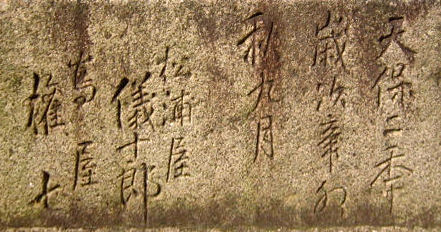 天保二秊
歳次辛卯
秋九月
松浦屋
儀十郎
嶌屋
権七